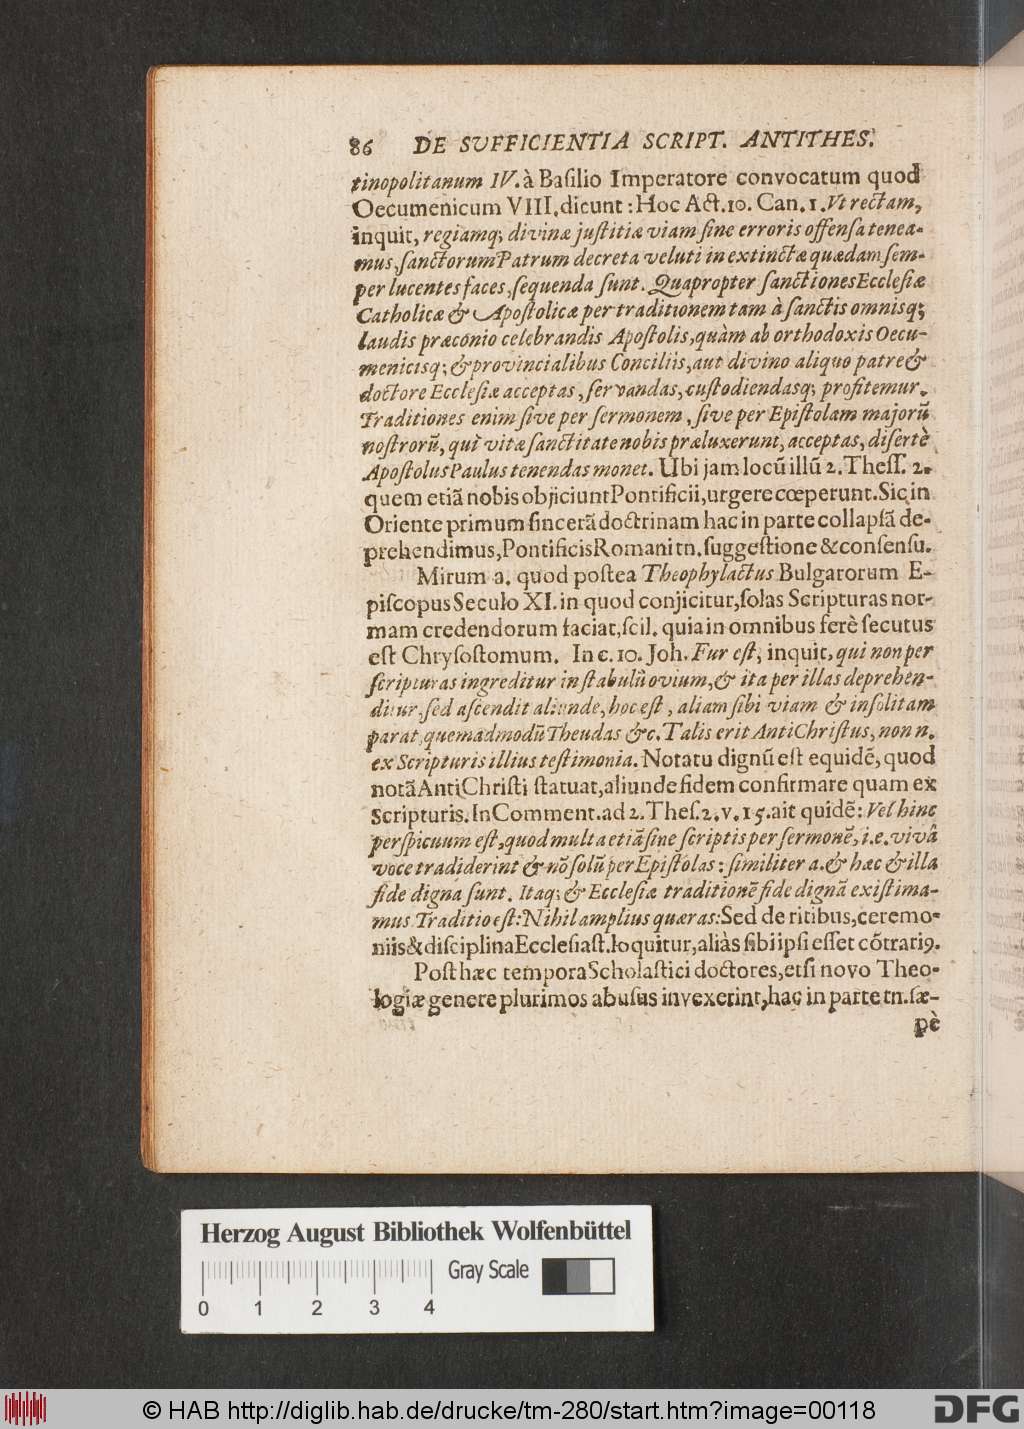 86 DE SVFFICIENTIA SCRIPT. ANTITHES.
tinopolitanum IV. à Baſilio Imperatore convocatum quod
Oecumenicum VIII. dicunt: Hoc Act. 10. Can. 1. Vt rectam,
inquit, regiamq; divinæ juſtitiæ viam ſine erroris offenſa tenea-
mus, ſanctorum Patrum decreta veluti inextinctæ quædam ſem-
per lucentes faces, ſequenda ſunt. Quapropter ſanctiones Eccleſiæ
Catholicæ & Apoſtolicæ per traditionem tam à ſanctis omnisq;
laudis præconio celebrandis Apoſtolis, quàm ab orthodoxis Oecu-
menicisq; & provincialibus Conciliis, aut divino aliquo patre &
doctore Eccleſiæ acceptas, ſervandas, cuſtodiendasq; profitemur.
Traditiones enim ſive per ſermonem, ſive per Epiſtolam majorũ
noſtrorũ, qui vitæ ſanctitate nobis præluxerunt, acceptas, diſertè
Apoſtolus Paulus tenendas monet. Ubi jam locũ illũ 2. Theſſ. 2.
quem etiã nobis objiciunt Pontificii, urgere cœperunt. Sic in
Oriente primum ſincerã doctrinam hac in parte collapſã de-
prehendimus, Pontificis Romani tn. ſuggeſtione & conſenſu.
Mirum a. quod poſtea Theophylactus Bulgarorum E-
piſcopus Seculo XI. in quod conjicitur, ſolas Scripturas nor-
mam credendorum faciat, ſcil. quia in omnibus ferè ſecutus
eſt Chryſoſtomum. In c. 10. Joh. Fur eſt, inquit, qui non per
ſcripturas ingreditur in ſtabulũ ovium, & ita per illas deprehen-
ditur, ſed aſcendit aliunde, hoc eſt, aliam ſibi viam & inſolitam
parat, quemadmodũ Theudas &c. Talis erit AntiChriſtus, non n.
ex Scripturis illius teſtimonia. Notatu dignũ eſt equidẽ, quod
notã AntiChriſti ſtatuat, aliunde fidem confirmare quam ex
Scripturis. In Comment. ad 2. Theſ. 2. v. 15. ait quidẽ: Vel hinc
perſpicuum eſt, quod multa etiã ſine ſcriptis per ſermonẽ, i.e. vivâ
voce tradiderint & nõ ſolũ per Epiſtolas: ſimiliter a. & hæc & illa
fide digna ſunt. Itaq; & Eccleſiæ traditionẽ fide dignã exiſtima-
mus Traditio eſt: Nihil amplius quæras: Sed de ritibus, ceremo-
niis & diſciplina Eccleſiaſt. loquitur, aliàs ſibi ipſi eſſet cõtrariꝰ.
Poſt hæc tempora Scholaſtici doctores, etſi novo Theo-
logiæ genere plurimos abuſus invexerint, hac in parte tn. ſæ-
pè
Herzog August Bibliothek Wolfenbüttel
Gray Scale
0 1 2 3 4
© HAB http://diglib.hab.de/drucke/tm-280/start.htm?image=00118
DFG